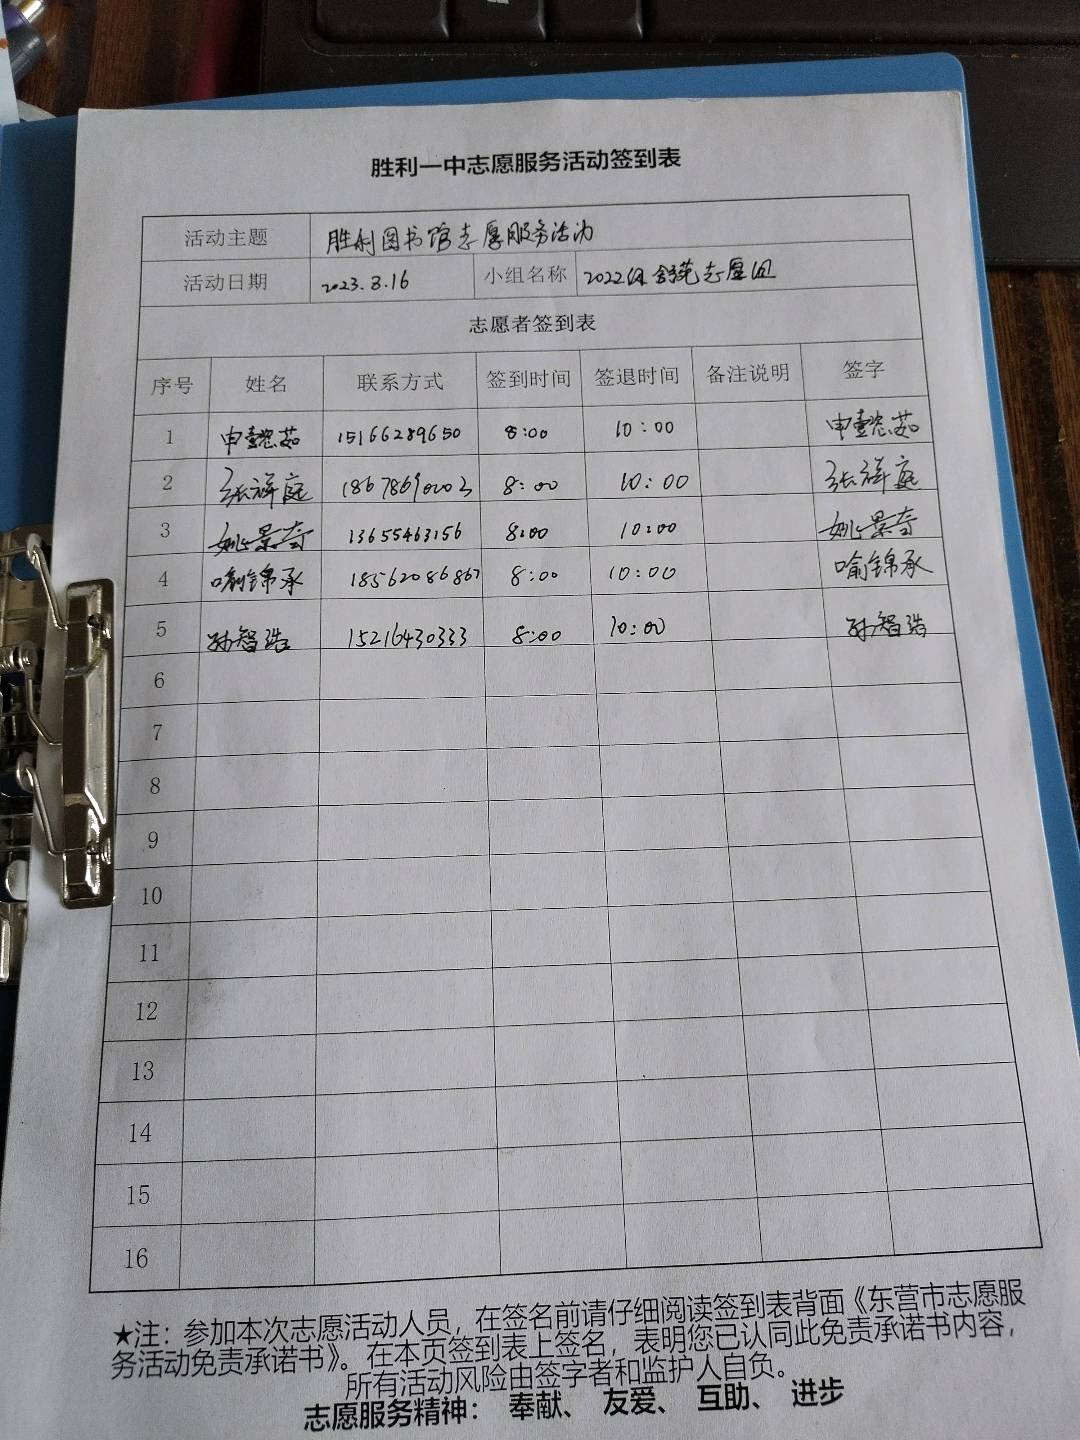 胜利一中志愿服务活动签到表
活动主题 胜利图书馆志愿服务活动
活动日期 2023.8.16 小组名称 2022级 志愿团
志愿者签到表
序号 姓名 联系方式 签到时间 签退时间 备注说明 签字
1 申懿茹 15166289650 8:00 10:00 申懿茹
2 张祥庭 18678690003 8:00 10:00 张祥庭
3 姚景奇 13655463156 8:00 10:00 姚景奇
4 喻锦承 18562086867 8:00 10:00 喻锦承
5 孙智浩 15216430333 8:00 10:00 孙智浩
6
7
8
9
10
11
12
13
14
15
16
★注：参加本次志愿活动人员，在签名前请仔细阅读签到表背面《东营市志愿服
务活动免责承诺书》。在本页签到表上签名，表明您已认同此免责承诺书内容，
所有活动风险由签字者和监护人自负。
志愿服务精神： 奉献、 友爱、 互助、 进步